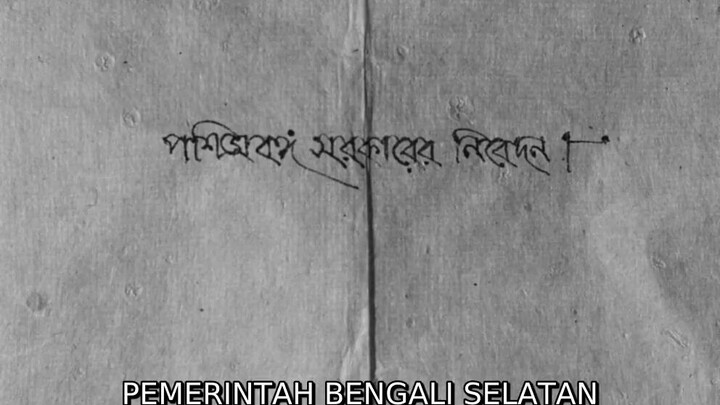 পশ্চিমবঙ্গ সরকারের নিবেদন ৷
PEMERINTAH BENGALI SELATAN